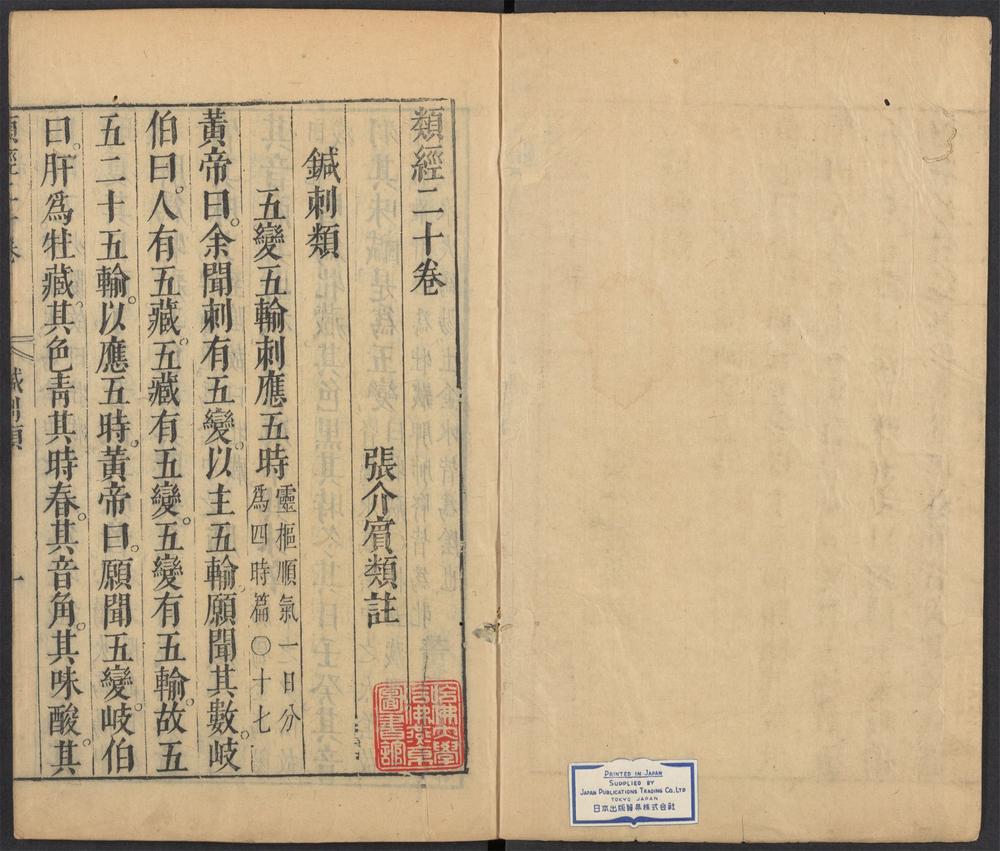 類經二十卷
張介賓類註
鍼刺類
五變五輸刺應五時靈樞順氣一日分
爲四時篇〇十七
黃帝曰。余聞刺有五變。以主五輸願聞其數。岐
伯曰。人有五藏。五藏有五變。五變有五輸。故五
五二十五輸。以應五時。黃帝曰。願聞五變。岐伯
曰。肝爲牡藏。其色青其時春。其音角。其味酸。其
類經二十卷
鍼刺類
一
哈佛大學
哈佛燕京
圖書館
PRINTED IN JAPAN
SUPPLIED BY
JAPAN PUBLICATIONS TRADING CO., LTD
TOKYO JAPAN
日本出版貿易株式会社